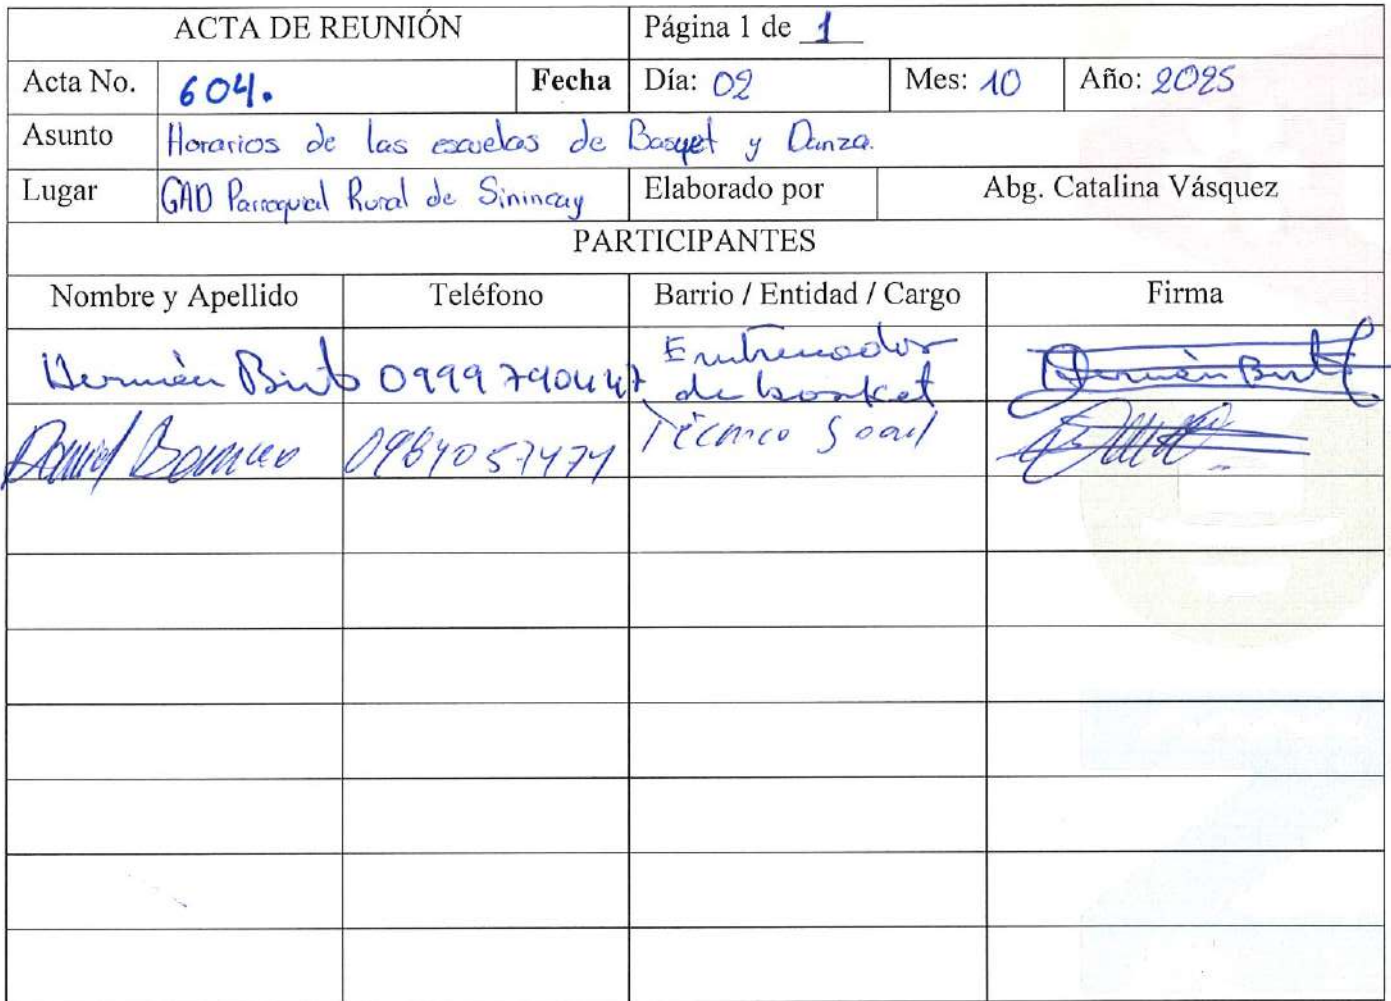 ACTA DE REUNIÓN Página 1 de 1
Acta No. 604. Fecha Día: 02 Mes: 10 Año: 2025
Asunto Horarios de las escuelas de Basquet y Danza.
Lugar GAD Parroquial Rural de Sinincay Elaborado por Abg. Catalina Vásquez
PARTICIPANTES
Nombre y Apellido Teléfono Barrio / Entidad / Cargo Firma
Hernán 0999790447 Entrenador
de basket
Daniel 0984057471 Técnico Social